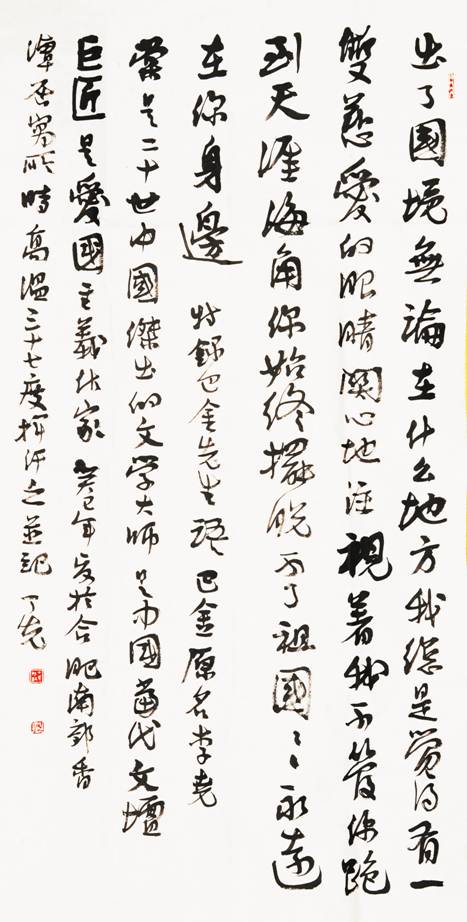 出了國境無論在什么地方我總是覺得有一
雙慈愛的眼睛關心地注視着我不管你跑
到天涯海角你始終擺脫不了祖國〻〻永遠
在你身邊 特録巴金先生語巴金原名李堯
棠是二十世中國傑出的文學大師是中國當代文壇
巨匠是愛國主義作家 癸巳年夏於合肥南郭香
潭居寓所時高溫三十七度揮汗之並記